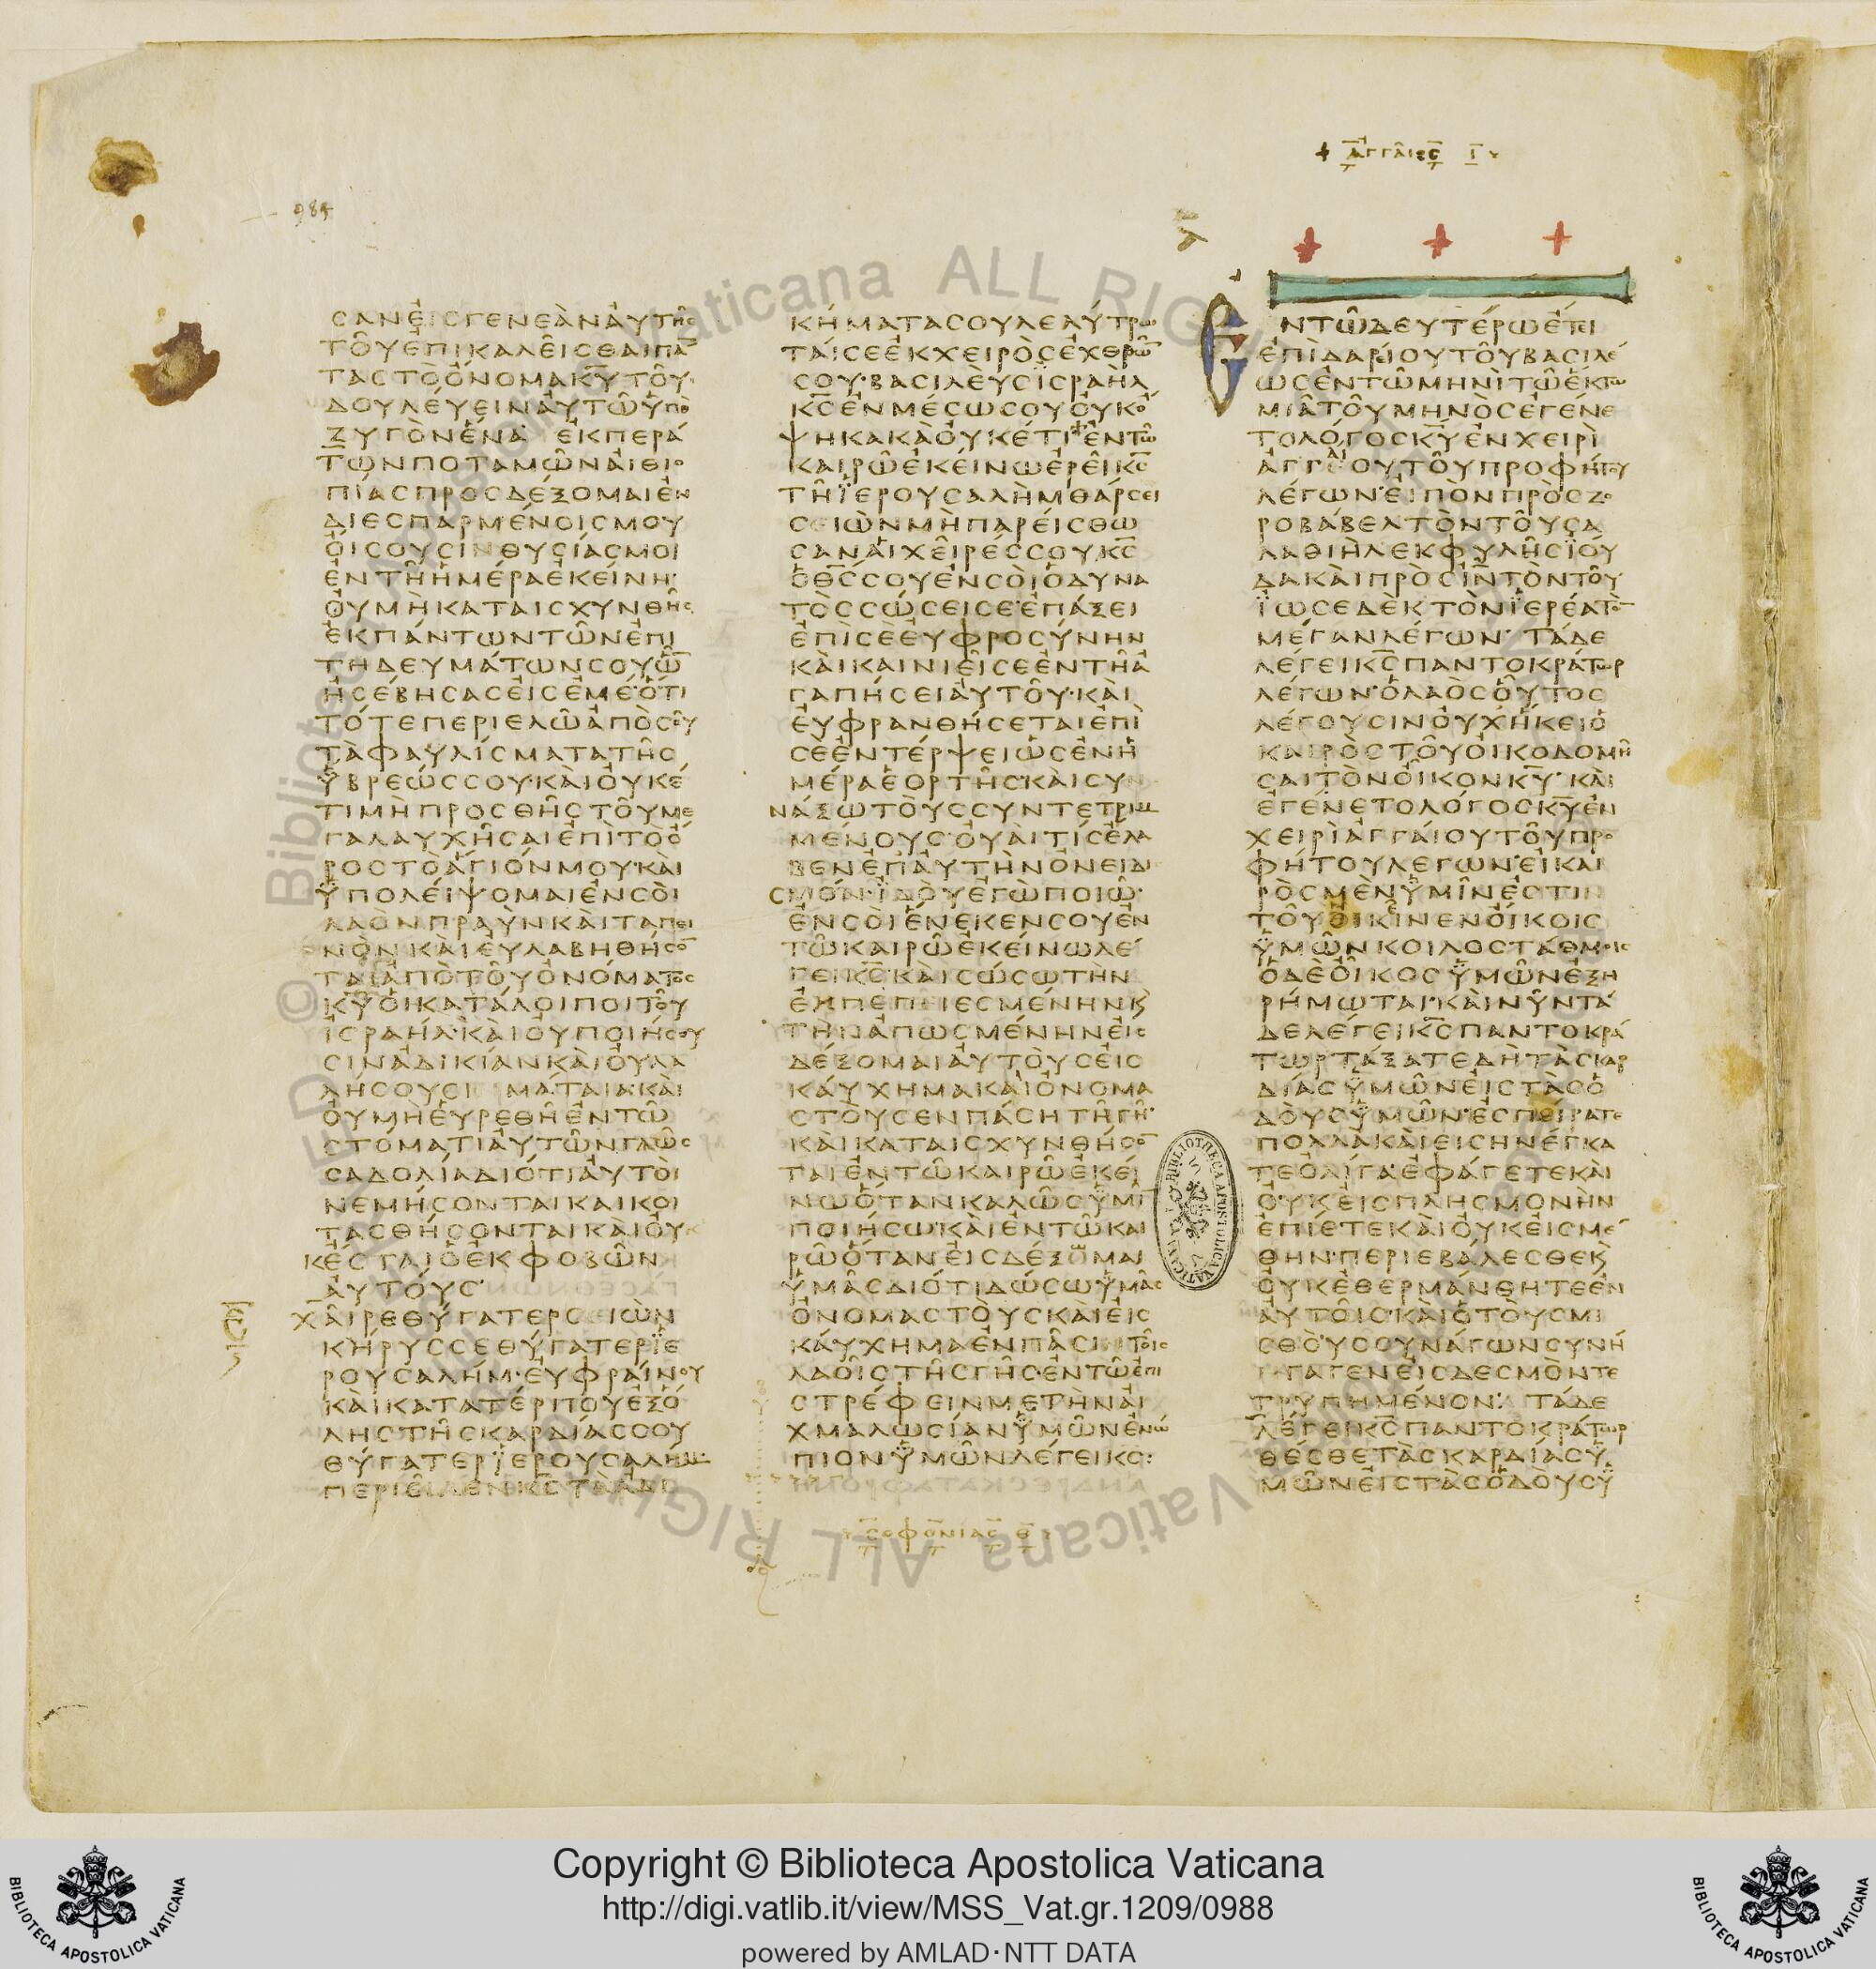 + ΑΓΓΑΙΟΣ Ι
984
ΣΑΝ ΕΙΣ ΓΕΝΕΑΝ ΑΥΤΗΣ
ΤΟΥ ΕΠΙΚΑΛΕΙΣΘΑΙ ΠΑ̅
ΤΑΣ ΤΟ ΟΝΟΜΑ Κ̅Υ̅ ΤΟΥ
ΔΟΥΛΕΥΕΙΝ ΑΥΤΩ ΥΠΟ
ΖΥΓΟΝ ΕΝΑ· ΕΚ ΠΕΡΑ
ΤΩΝ ΠΟΤΑΜΩΝ ΑΙΘΙΟ
ΠΙΑΣ ΠΡΟΣΔΕΞΟΜΑΙ ΕΝ
ΔΙΕΣΠΑΡΜΕΝΟΙΣ ΜΟΥ
ΟΙΣΟΥΣΙΝ ΘΥΣΙΑΣ ΜΟΙ
ΕΝ ΤΗ ΗΜΕΡΑ ΕΚΕΙΝΗ·
ΟΥ ΜΗ ΚΑΤΑΙΣΧΥΝΘΗΣ
ΕΚ ΠΑΝΤΩΝ ΤΩΝ ΕΠΙ
ΤΗΔΕΥΜΑΤΩΝ ΣΟΥ Ω̅
ΗΣΕΒΗΣΑΣ ΕΙΣ ΕΜΕ· ΟΤΙ
ΤΟΤΕ ΠΕΡΙΕΛΩ ΑΠΟ ΣΟΥ
ΤΑ ΦΑΥΛΙΣΜΑΤΑ ΤΗΣ
ΥΒΡΕΩΣ ΣΟΥ· ΚΑΙ ΟΥΚΕ
ΤΙ ΜΗ ΠΡΟΣΘΗΣ ΤΟΥ ΜΕ
ΓΑΛΑΥΧΗΣΑΙ ΕΠΙ ΤΟ Ο
ΡΟΣ ΤΟ ΑΓΙΟΝ ΜΟΥ· ΚΑΙ
ΥΠΟΛΕΙΨΟΜΑΙ ΕΝ ΣΟΙ
ΛΑΟΝ ΠΡΑΥΝ ΚΑΙ ΤΑΠΕΙ
ΝΟΝ ΚΑΙ ΕΥΛΑΒΗΘΗΣΟ̅
ΤΑΙ ΑΠΟ ΤΟΥ ΟΝΟΜΑΤΟΣ
Κ̅Υ̅ ΟΙ ΚΑΤΑΛΟΙΠΟΙ ΤΟΥ
ΙΣΡΑΗΛ· ΚΑΙ ΟΥ ΠΟΙΗΣΟΥ
ΣΙΝ ΑΔΙΚΙΑΝ ΚΑΙ ΟΥ ΛΑ
ΛΗΣΟΥΣΙ ΜΑΤΑΙΑ· ΚΑΙ
ΟΥ ΜΗ ΕΥΡΕΘΗ ΕΝ ΤΩ
ΣΤΟΜΑΤΙ ΑΥΤΩΝ ΓΛΩΣ
ΣΑ ΔΟΛΙΑ ΔΙΟΤΙ ΑΥΤΟΙ
ΝΕΜΗΣΟΝΤΑΙ ΚΑΙ ΚΟΙ
ΤΑΣΘΗΣΟΝΤΑΙ ΚΑΙ ΟΥ
Κ ΕΣΤΑΙ Ο ΕΚΦΟΒΩΝ
ΑΥΤΟΥΣ·
ΧΑΙΡΕ ΘΥΓΑΤΕΡ ΣΕΙΩΝ
ΚΗΡΥΣΣΕ ΘΥΓΑΤΕΡ ΙΕ
ΡΟΥΣΑΛΗΜ· ΕΥΦΡΑΙΝΟΥ
ΚΑΙ ΚΑΤΑΤΕΡΠΟΥ ΕΞ Ο
ΛΗΣ ΤΗΣ ΚΑΡΔΙΑΣ ΣΟΥ
ΘΥΓΑΤΕΡ ΙΕΡΟΥΣΑΛΗΜ·
ΠΕΡΙΕΙΛΕΝ Κ̅Σ̅ ΤΑ ΑΔΙ
ΚΗΜΑΤΑ ΣΟΥ ΛΕΛΥΤΡΩ
ΤΑΙ ΣΕ ΕΚ ΧΕΙΡΟΣ ΕΧΘΡΩ̅
ΣΟΥ· ΒΑΣΙΛΕΥΣ ΙΣΡΑΗΛ
Κ̅Σ̅ ΕΝ ΜΕΣΩ ΣΟΥ ΟΥΚ Ο
ΨΗ ΚΑΚΑ ΟΥΚΕΤΙ· ΕΝ ΤΩ
ΚΑΙΡΩ ΕΚΕΙΝΩ ΕΡΕΙ Κ̅Σ̅
ΤΗ ΙΕΡΟΥΣΑΛΗΜ· ΘΑΡΣΕΙ
ΣΕΙΩΝ ΜΗ ΠΑΡΕΙΣΘΩ
ΣΑΝ ΑΙ ΧΕΙΡΕΣ ΣΟΥ Κ̅Σ̅
Ο Θ̅Σ̅ ΣΟΥ ΕΝ ΣΟΙ Ο ΔΥΝΑ
ΤΟΣ ΣΩΣΕΙ ΣΕ· ΕΠΑΞΕΙ
ΕΠΙ ΣΕ ΕΥΦΡΟΣΥΝΗΝ
ΚΑΙ ΚΑΙΝΙΕΙ ΣΕ ΕΝ ΤΗ Α
ΓΑΠΗΣΕΙ ΑΥΤΟΥ· ΚΑΙ
ΕΥΦΡΑΝΘΗΣΕΤΑΙ ΕΠΙ
ΣΕ ΕΝ ΤΕΡΨΕΙ ΩΣ ΕΝ Η
ΜΕΡΑ ΕΟΡΤΗΣ· ΚΑΙ ΣΥ
ΝΑΞΩ ΤΟΥΣ ΣΥΝΤΕΤΡΙΜ
ΜΕΝΟΥΣ· ΟΥΑΙ ΤΙΣ ΕΛΑ
ΒΕΝ ΕΠ ΑΥΤΗΝ ΟΝΕΙΔΙ
ΣΜΟΝ· ΙΔΟΥ ΕΓΩ ΠΟΙΩ
ΕΝ ΣΟΙ ΕΝΕΚΕΝ ΣΟΥ ΕΝ
ΤΩ ΚΑΙΡΩ ΕΚΕΙΝΩ ΛΕ
ΓΕΙ Κ̅Σ̅· ΚΑΙ ΣΩΣΩ ΤΗΝ
ΕΚΠΕΠΙΕΣΜΕΝΗΝ Κ̀
ΤΗΝ ΑΠΩΣΜΕΝΗΝ ΕΙΣ
ΔΕΞΟΜΑΙ ΑΥΤΟΥΣ ΕΙΣ
ΚΑΥΧΗΜΑ ΚΑΙ ΟΝΟΜΑ
ΣΤΟΥΣ ΕΝ ΠΑΣΗ ΤΗ ΓΗ·
ΚΑΙ ΚΑΤΑΙΣΧΥΝΘΗΣΟ̅
ΤΑΙ ΕΝ ΤΩ ΚΑΙΡΩ ΕΚΕΙ
ΝΩ ΟΤΑΝ ΚΑΛΩΣ ΥΜΙ̅
ΠΟΙΗΣΩ· ΚΑΙ ΕΝ ΤΩ ΚΑΙ
ΡΩ ΟΤΑΝ ΕΙΣΔΕΞΩΜΑΙ
ΥΜΑΣ ΔΙΟΤΙ ΔΩΣΩ ΥΜΑΣ
ΟΝΟΜΑΣΤΟΥΣ ΚΑΙ ΕΙΣ
ΚΑΥΧΗΜΑ ΕΝ ΠΑΣΙ ΤΟΙΣ
ΛΑΟΙΣ ΤΗΣ ΓΗΣ· ΕΝ ΤΩ ΕΠΙ
ΣΤΡΕΦΕΙΝ ΜΕ ΤΗΝ ΑΙ
ΧΜΑΛΩΣΙΑΝ ΥΜΩΝ ΕΝΩ
ΠΙΟΝ ΥΜΩΝ ΛΕΓΕΙ Κ̅Σ̅:
ΣΟΦΟΝΙΑΣ Θ
ΕΝ ΤΩ ΔΕΥΤΕΡΩ ΕΤΕΙ
ΕΠΙ ΔΑΡΕΙΟΥ ΤΟΥ ΒΑΣΙΛΕ
ΩΣ ΕΝ ΤΩ ΜΗΝΙ ΤΩ ΕΚΤΩ
ΜΙΑ ΤΟΥ ΜΗΝΟΣ ΕΓΕΝΕ
ΤΟ ΛΟΓΟΣ Κ̅Υ̅ ΕΝ ΧΕΙΡΙ
ΑΓΓΑΙΟΥ ΤΟΥ ΠΡΟΦΗΤΟΥ
ΛΕΓΩΝ· ΕΙΠΟΝ ΠΡΟΣ ΖΟ
ΡΟΒΑΒΕΛ ΤΟΝ ΤΟΥ ΣΑ
ΛΑΘΙΗΛ ΕΚ ΦΥΛΗΣ ΙΟΥ
ΔΑ ΚΑΙ ΠΡΟΣ Ι̅Ν̅ ΤΟΝ ΤΟΥ
ΙΩΣΕΔΕΚ ΤΟΝ ΙΕΡΕΑ ΤΟ̅
ΜΕΓΑΝ ΛΕΓΩΝ· ΤΑΔΕ
ΛΕΓΕΙ Κ̅Σ̅ ΠΑΝΤΟΚΡΑΤΩΡ
ΛΕΓΩΝ· Ο ΛΑΟΣ ΟΥΤΟΣ
ΛΕΓΟΥΣΙΝ ΟΥΧ ΗΚΕΙ Ο
ΚΑΙΡΟΣ ΤΟΥ ΟΙΚΟΔΟΜΗ
ΣΑΙ ΤΟΝ ΟΙΚΟΝ Κ̅Υ̅· ΚΑΙ
ΕΓΕΝΕΤΟ ΛΟΓΟΣ Κ̅Υ̅ ΕΝ
ΧΕΙΡΙ ΑΓΓΑΙΟΥ ΤΟΥ ΠΡΟ
ΦΗΤΟΥ ΛΕΓΩΝ· ΕΙ ΚΑΙ
ΡΟΣ ΜΕΝ ΥΜΙΝ ΕΣΤΙΝ
ΤΟΥ ΟΙΚΕΙΝ ΕΝ ΟΙΚΟΙΣ
ΥΜΩΝ ΚΟΙΛΟΣΤΑΘΜΟΙΣ
Ο ΔΕ ΟΙΚΟΣ ΥΜΩΝ ΕΞΗ
ΡΗΜΩΤΑΙ· ΚΑΙ ΝΥΝ ΤΑ
ΔΕ ΛΕΓΕΙ Κ̅Σ̅ ΠΑΝΤΟΚΡΑ
ΤΩΡ· ΤΑΞΑΤΕ ΔΗ ΤΑΣ ΚΑΡ
ΔΙΑΣ ΥΜΩΝ ΕΙΣ ΤΑΣ Ο
ΔΟΥΣ ΥΜΩΝ· ΕΣΠΕΙΡΑΤΕ
ΠΟΛΛΑ ΚΑΙ ΕΙΣΗΝΕΓΚΑ
ΤΕ ΟΛΙΓΑ· ΕΦΑΓΕΤΕ ΚΑΙ
ΟΥΚ ΕΙΣ ΠΛΗΣΜΟΝΗΝ
ΕΠΙΕΤΕ ΚΑΙ ΟΥΚ ΕΙΣ ΜΕ
ΘΗΝ· ΠΕΡΙΕΒΑΛΕΣΘΕ Κ̀
ΟΥΚ ΕΘΕΡΜΑΝΘΗΤΕ ΕΝ
ΑΥΤΟΙΣ· ΚΑΙ Ο ΤΟΥΣ ΜΙ
ΣΘΟΥΣ ΣΥΝΑΓΩΝ ΣΥΝΗ
ΓΑΓΕΝ ΕΙΣ ΔΕΣΜΟΝ ΤΕ
ΤΡΥΠΗΜΕΝΟΝ: ΤΑΔΕ
ΛΕΓΕΙ Κ̅Σ̅ ΠΑΝΤΟΚΡΑΤΩΡ
ΘΕΣΘΕ ΤΑΣ ΚΑΡΔΙΑΣ Υ
ΜΩΝ ΕΙΣ ΤΑΣ ΟΔΟΥΣ Υ
Copyright © Biblioteca Apostolica Vaticana
http://digi.vatlib.it/view/MSS_Vat.gr.1209/0988
powered by AMLAD·NTT DATA
BIBLIOTECA APOSTOLICA VATICANA
BIBLIOTECA APOSTOLICA VATICANA